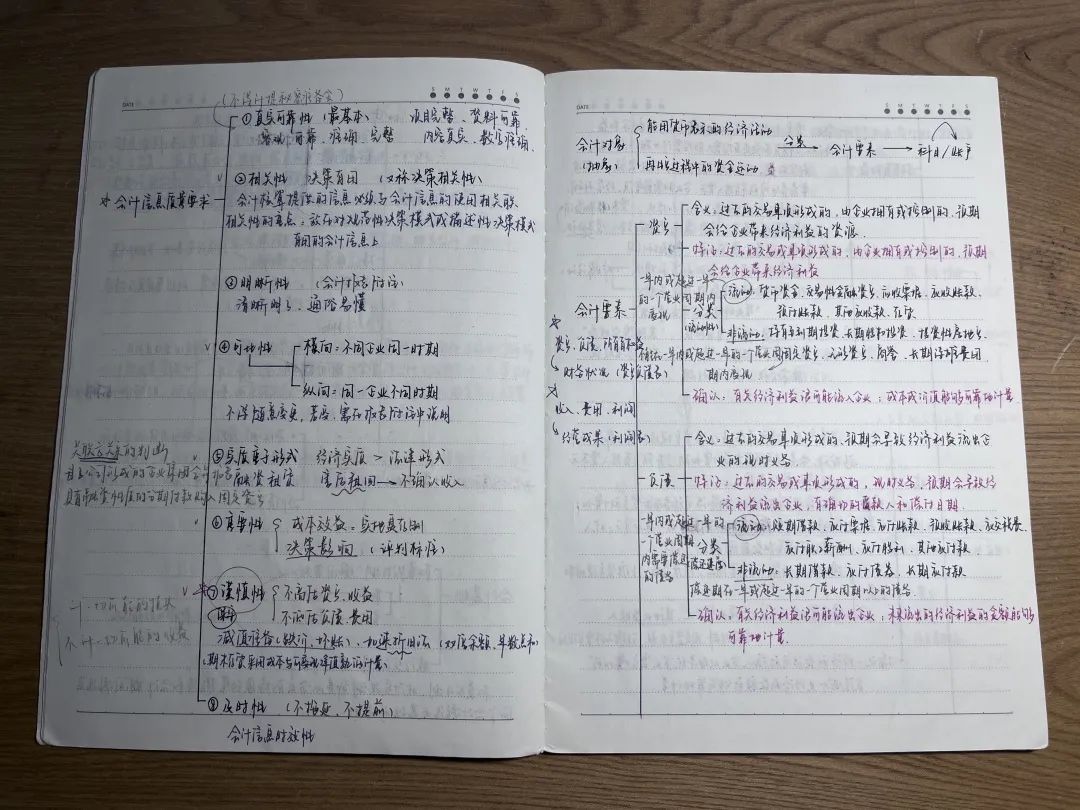 DATE
S M T W T F S
(不得计提秘密准备金)
①真实可靠性 (最基本) 项目完整、资料可靠
客观、可靠、准确、完整 内容真实、数字准确
②相关性 决策有用 (又称决策相关性)
会计信息质量要求
会计核算提供的信息必须与会计信息的使用相关联
相关性的重点:放在对规范性决策模式或描述性决策模式
有用的会计信息上
③明晰性 (会计报表附注)
清晰明了、通俗易懂
④可比性 横向:不同企业同一时期
纵向:同一企业不同时期
不得随意变更,若变,需在报表附注中说明
关联方关系的判断
⑤实质重于形式 经济实质 > 法律形式
融资租赁 售后租回 → 不确认收入
具有融资性质的分期付款购入固定资产
⑥重要性 成本效益
决策影响 (评判标准)
⑦谨慎性 不高估资产、收益
不低估负债、费用
减值准备(跌价、坏账)、加速折旧法 (双倍余额、年数总和)
期末存货采用成本与可变现净值孰低计量
⑧及时性 (不拖延、不提前)
会计信息时效性
DATE
S M T W T F S
会计对象 能用货币表示的经济活动
(抽象) 再生产过程中的资金运动
分类 → 会计要素 → 科目/账户
资产 含义:过去的交易或事项形成的,由企业拥有或控制的,预期
会给企业带来经济利益的资源
特征:过去的交易或事项形成的,由企业拥有或控制的,预期
会给企业带来经济利益
一年内或超过一年
的一个营业周期内
变现
分类
(流动性)
流动:货币资金、交易性金融资产、应收票据、应收账款、
预付账款、其他应收款、存货
会计要素
非流动:持有至到期投资、长期股权投资、投资性房地产、
固定资产、无形资产、商誉、长期待摊费用
资产、负债、所有者权益
财务状况 (资产负债表)
确认:有关经济利益很可能流入企业;成本或价值能够可靠地计量
收入、费用、利润
经营成果 (利润表)
负债 含义:过去的交易或事项形成的,预期会导致经济利益流出企
业的现时义务
特征:过去的交易或事项形成的,现时义务,预期会导致经
济利益流出企业,有确切的债权人和偿付日期
一年内或超过一年的
一个营业周期
内需要偿还
的债务
分类
偿还速度
流动:短期借款、应付票据、应付账款、预收账款、应交税费、
应付职工薪酬、应付股利、其他应付款
非流动:长期借款、应付债券、长期应付款
偿还期在一年或超过一年的一个营业周期以上的债务
确认:有关经济利益很可能流出企业;未来流出的经济利益的金额能够
可靠地计量